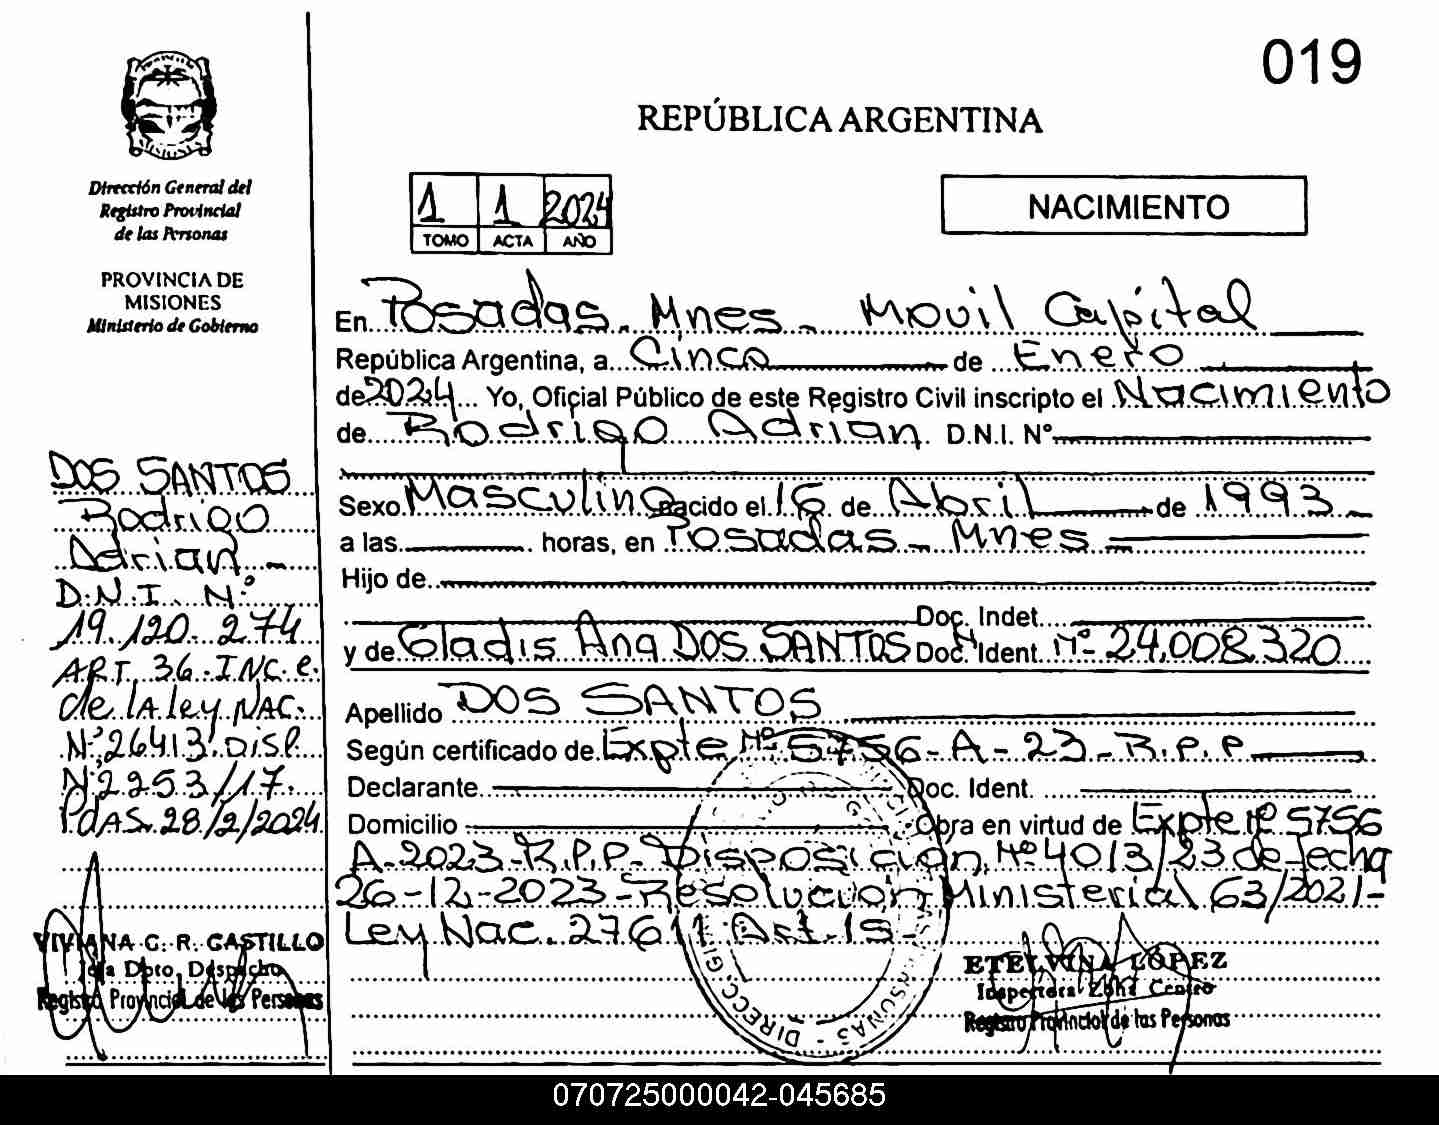 019
REPÚBLICA ARGENTINA
Dirección General del
Registro Provincial
de las Personas
PROVINCIA DE
MISIONES
Ministerio de Gobierno
1 1 2024
TOMO ACTA AÑO
NACIMIENTO
En Posadas - Mnes - Movil Capital
República Argentina, a Cinco de Enero
de 2024 Yo, Oficial Público de este Registro Civil inscripto el Nacimiento
de Rodrigo Adrian D.N.I. N°
Sexo Masculino nacido el 16 de Abril de 1993
a las horas, en Posadas - Mnes
Hijo de
Doc. Indet.
y de Gladis Ana DOS SANTOS Doc. Ident. N° 24.008.320
Apellido DOS SANTOS
Según certificado de Expte N° 5756-A-23-R.P.P
Declarante Doc. Ident.
Domicilio Obra en virtud de Expte N° 5756
A-2023-R.P.P- Disposición N° 4013/23 de fecha
26-12-2023-Resolucion Ministerial 63/2021-
Ley Nac. 27611 Art. 15-
DOS SANTOS
Rodrigo
Adrian -
D.N.I. N°
19.120.274
ART. 36.INC.e.
de LA ley NAC.
N° 26413 DISP.
N° 2253/17.
PdAS. 28/2/2024
VIVIANA G. R. CASTILLO
Jefa Dpto. Despacho
Registro Provincial de las Personas
ETELVINA LÓPEZ
Inspectora Zona Centro
Registro Provincial de las Personas
070725000042-045685